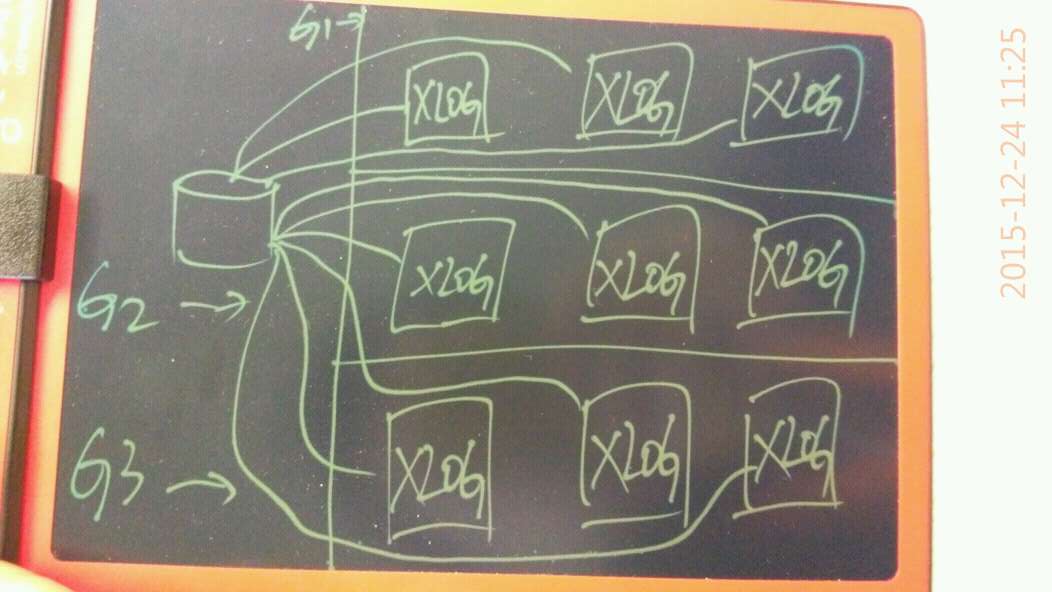 G1
XLOG XLOG XLOG
G2
XLOG XLOG XLOG
G3
XLOG XLOG XLOG
2015-12-24 11:25